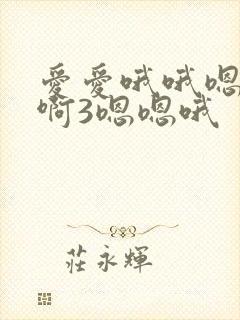 愛愛哦哦嗯
啊3嗯嗯哦
莊永輝